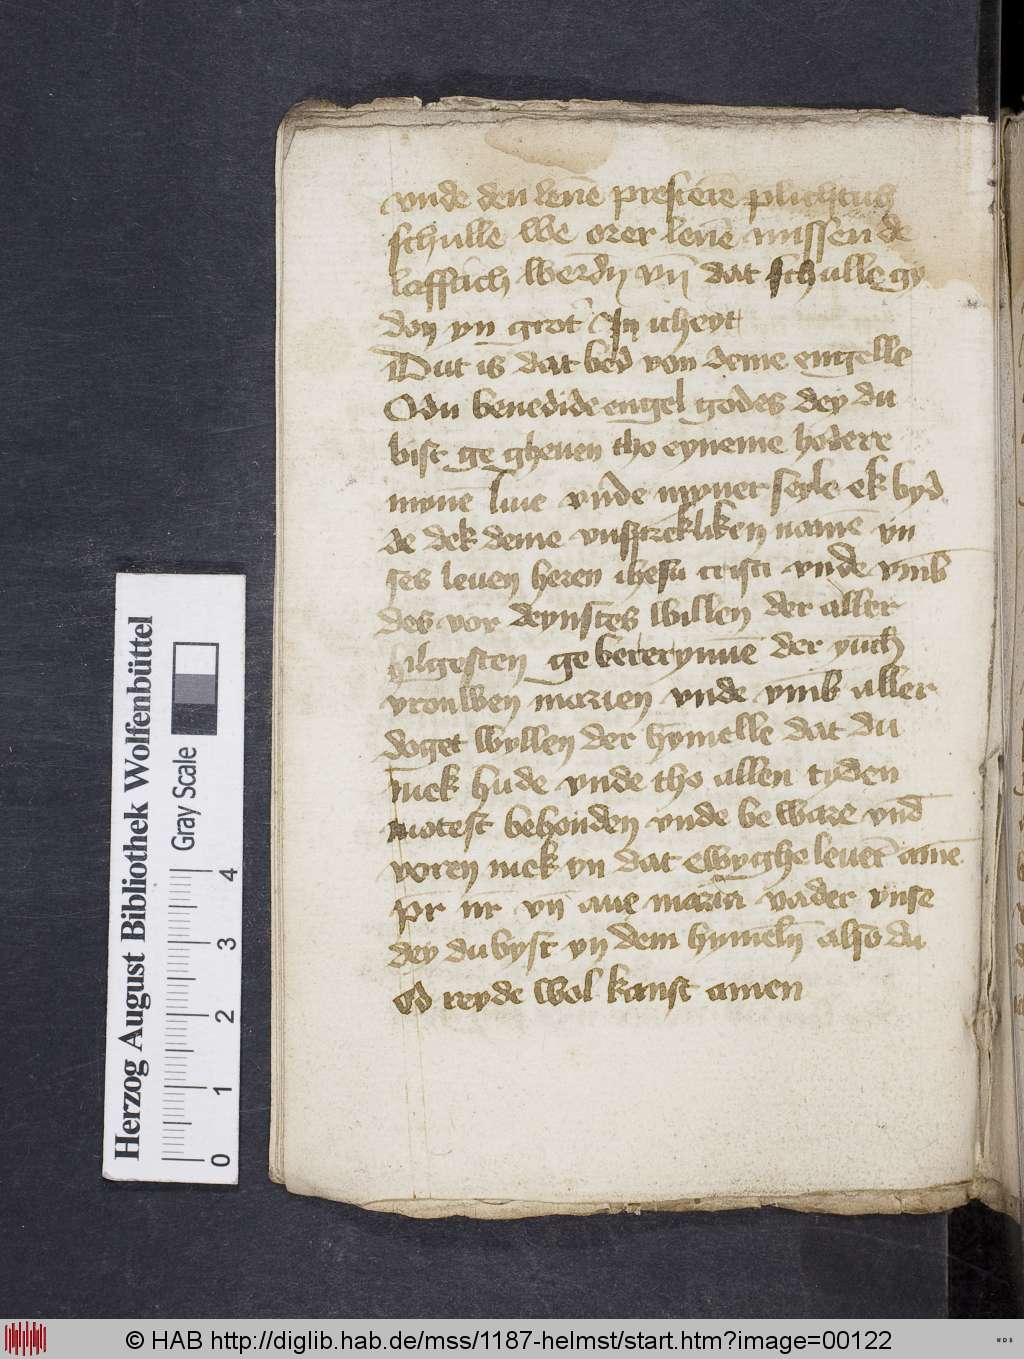 vnde den leuē presterē plichtich
schulle we orer leuē missen de
laftich werdn vn̄ dat schulle gy
don yn grot Inicheyt
Dut is dat bed von deme engelle
O du benedide engel godes dey du
bist ge gheuen tho eyneme hodere
mynē liue vnde myner seyle ek byd
de dek deme vnsprekliken namē vn
ses leuen heren ihesu cristi vnde vmb
des vor deynstes willen der aller
hilgesten ge bererynnē der yuch
vrouwen marien vnde vmb aller
doget wyllen der hymelle dat du
mek hude vnde tho allen tyden
motest behouden vnde be ware vnd
voren mek yn dat ewyghe leuēt amē
pr nr vn̄ aue maria vader vnse
dey du byst yn dem hymeln also du
od reyde wol kanst amen
Herzog August Bibliothek Wolfenbüttel
Gray Scale
0 1 2 3 4
© HAB http://diglib.hab.de/mss/1187-helmst/start.htm?image=00122
WDB